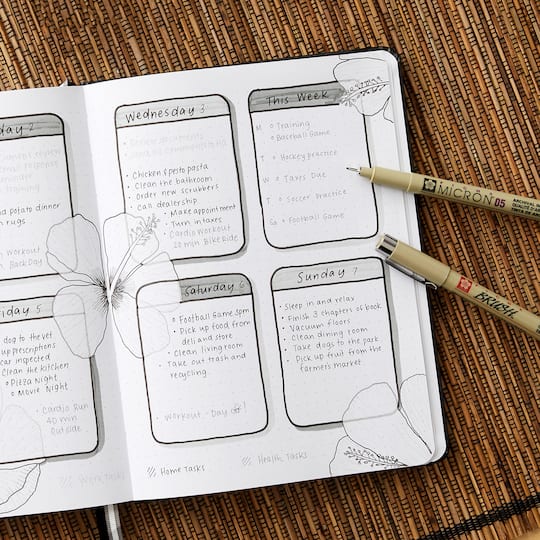 day 2
and potato dinner
rugs
workout
Back Day
Wednesday 3
Chicken & pesto pasta
Clean the bathroom
Order new scrubbers
Call dealership
Make appointment
Turn in taxes
Cardio workout
20 min Bike Ride
This Week
M Training
Baseball Game
T Hockey practice
W Taxes Due
T Soccer Practice
Sa Football Game
iday 5
dog to the vet
up prescriptions
car inspected
Clean the Kitchen
Pizza Night
Movie Night
Cardio Run
40 min
Outside
Saturday 6
Football Game 3pm
Pick up food from
deli and store
Clean living room
Take out trash and
recycling
Workout - Day off!
Sunday 7
Sleep in and relax
Finish 3 chapters of book
Vacuum floors
Clean dining room
Take dogs to the park
Pick up fruit from the
farmer's market
Work Tasks
Home Tasks
Health Tasks
MICRON 05
BRUSH